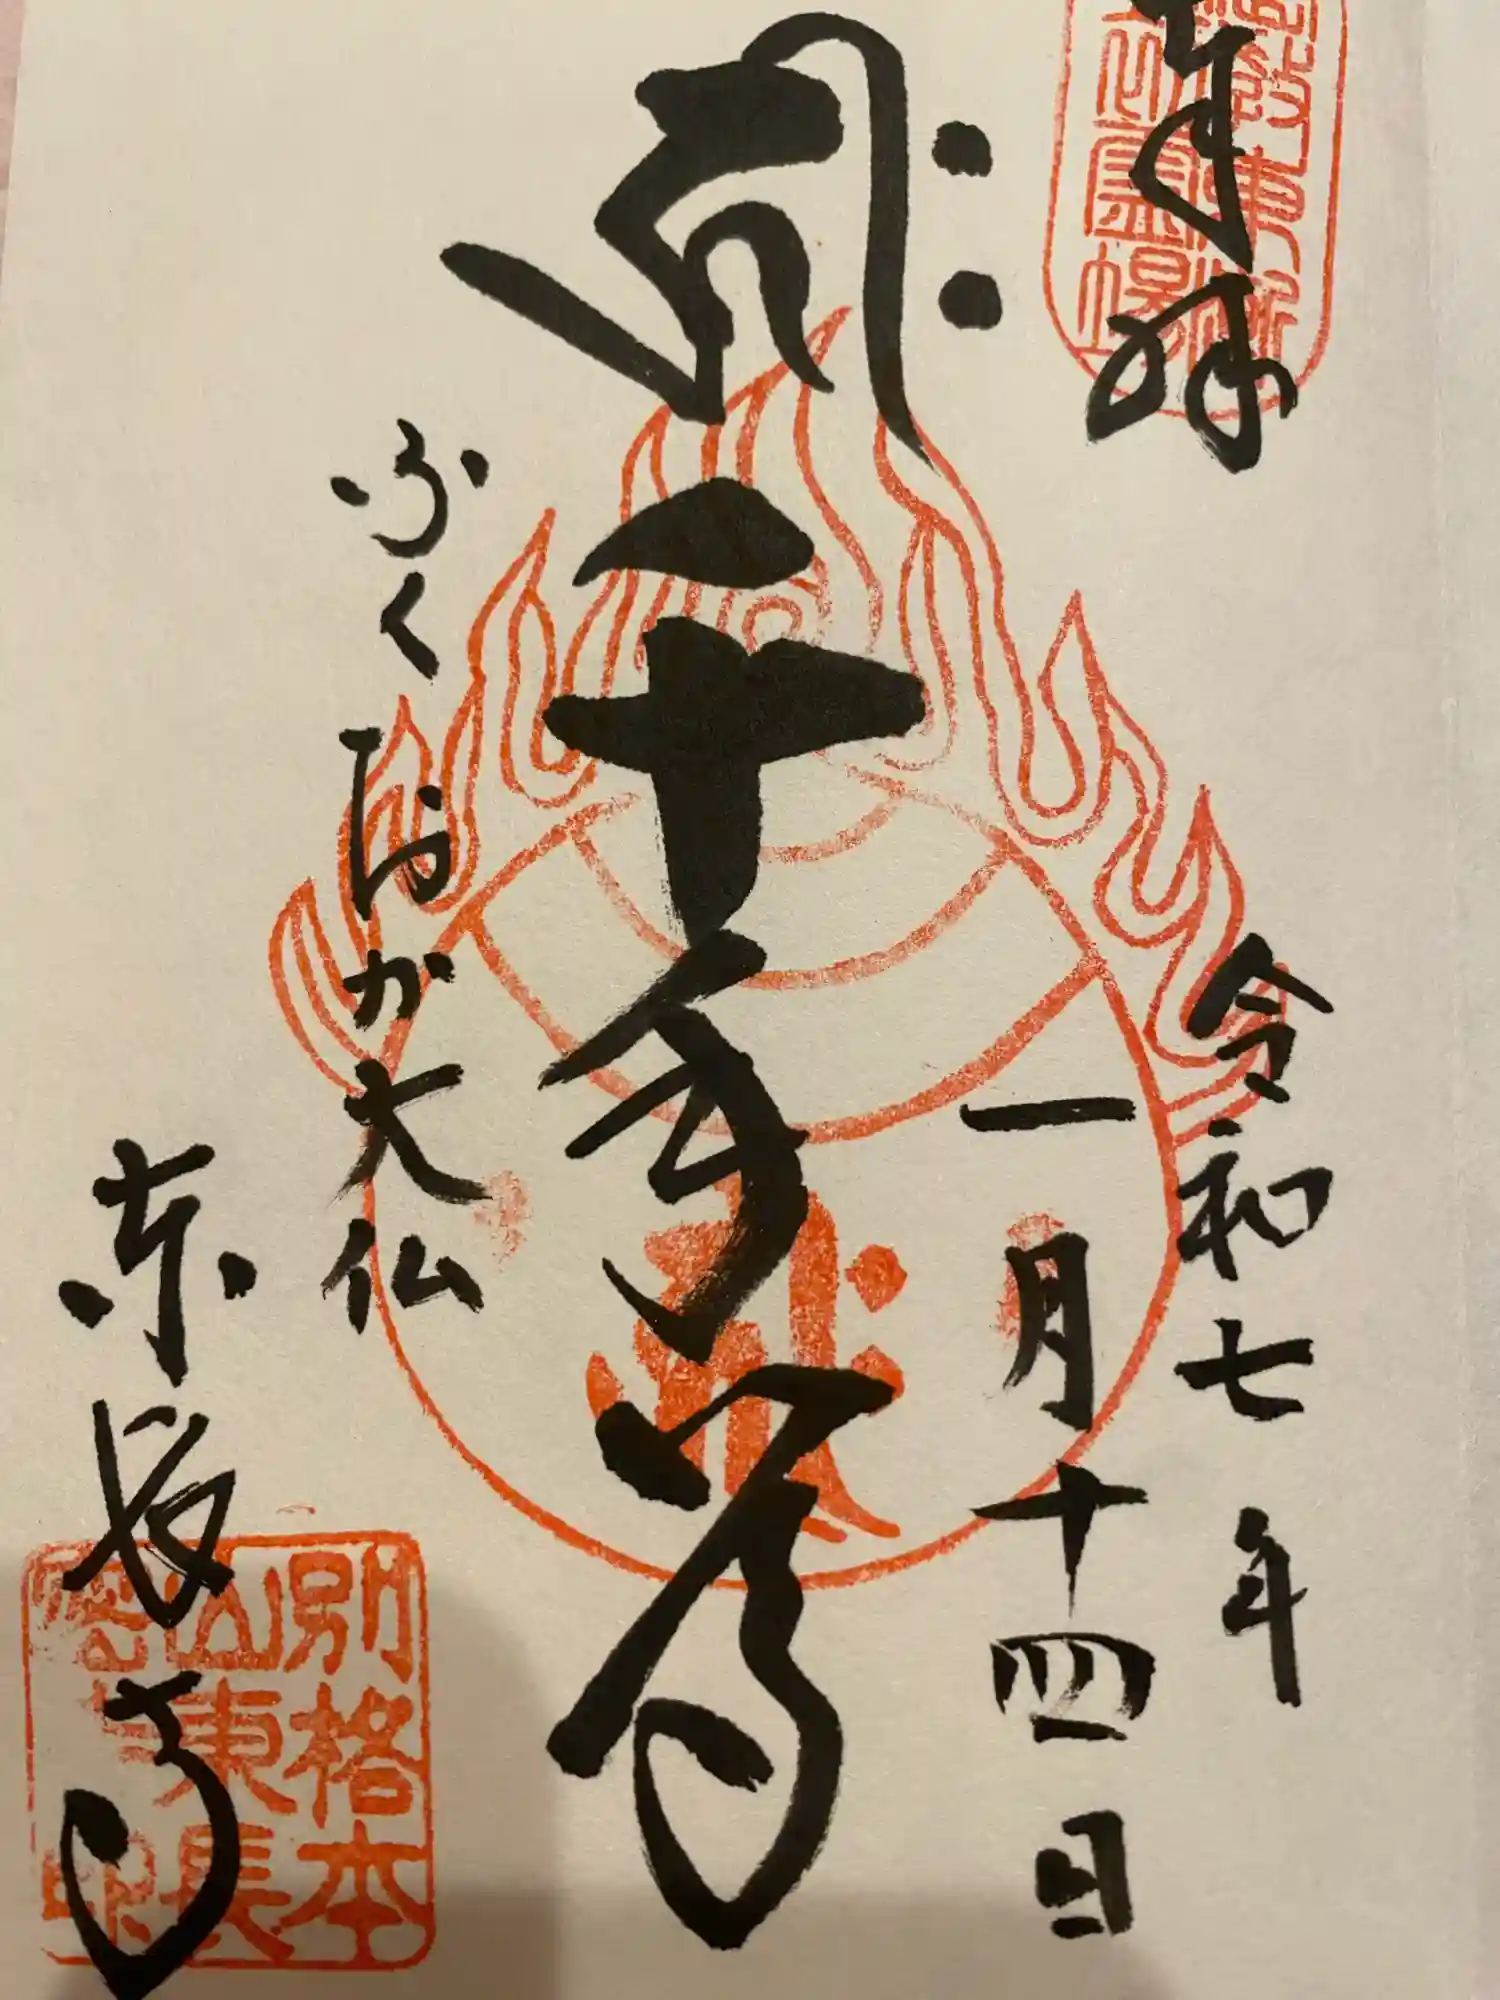 奉拝
令和七年
一月十四日
ह्रीः
千手尊
ふくおか大仏
東長寺
別格本
山東長
密寺印